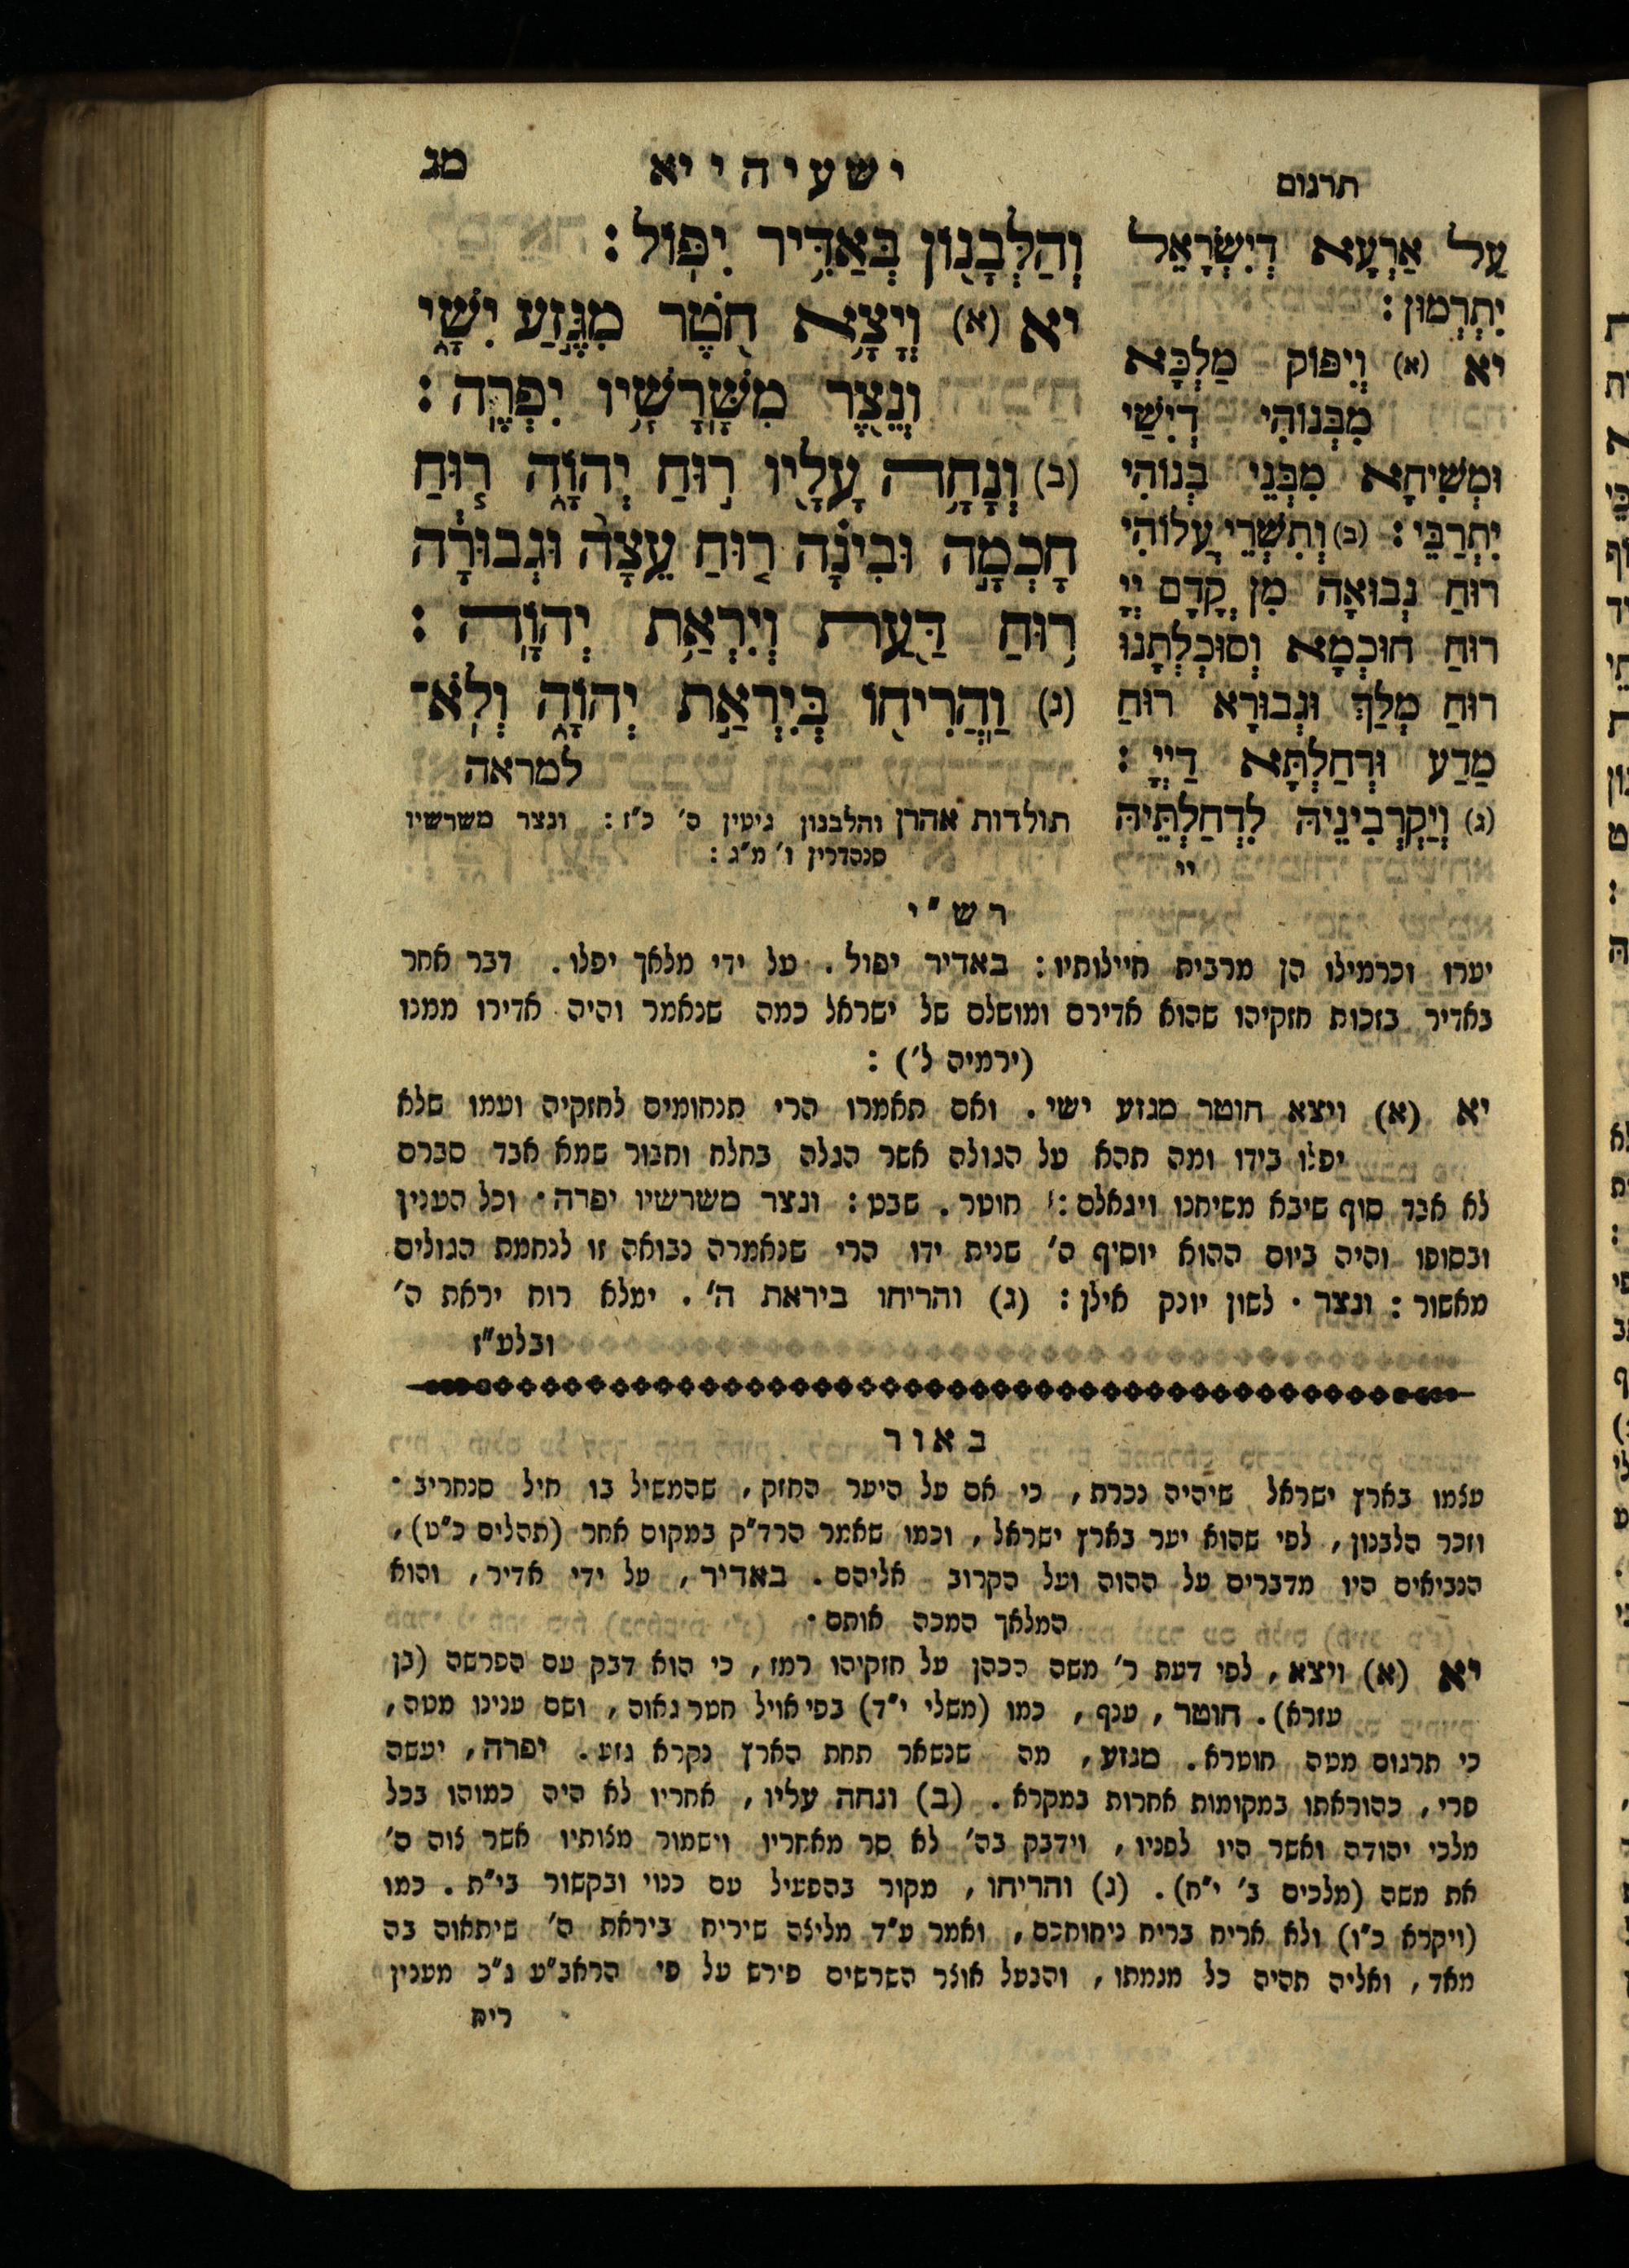 תרגום
ישעיה יא
מג
וְהַלְּבָנ֖וֹן בְּאַדִּ֥יר יִפּֽוֹל :
יא (א) וְיָצָ֥א חֹ֖טֶר מִגֶּ֣זַע יִשָׁ֑י
וְנֵ֖צֶר מִשָּׁרָשָׁ֥יו יִפְרֶֽה :
(ב) וְנָחָ֥ה עָלָ֖יו ר֣וּחַ יְהוָֹ֑ה ר֧וּחַ
חָכְמָ֣ה וּבִינָ֗ה ר֤וּחַ עֵצָה֙ וּגְבוּרָ֔ה
ר֥וּחַ דַּ֖עַת וְיִרְאַ֥ת יְהוָֹֽה :
(ג) וַהֲרִיח֖וֹ בְּיִרְאַ֣ת יְהוָֹ֑ה וְלֹֽא־
למראה
עַל אַרְעָא דְיִשְׂרָאֵל
יִתְרְמוּן :
יא (א) וְיִפּוֹק מַלְכָּא
מִבְּנוֹהִי דְיִשַׁי
וּמְשִׁיחָא מִבְּנֵי בְנוֹהִי
יִתְרַבֵּי : (ב) וְתִשְׁרֵי עֲלוֹהִי
רוּחַ נְבוּאָה מִן קֳדָם יְיָ
רוּחַ חוּכְמָא וְסוּכְלְתָנוּ
רוּחַ מְלַךְ וּגְבוּרָא רוּחַ
מַדַע וּדְחַלְתָּא דַיְיָ :
(ג) וְיַקְרְבִינֵיהּ לְדַחַלְתֵּיהּ
יי
תולדות אהרן והלבנון גיטין ס׳ כ״ז : ונצר משרשיו
סנהדרין ו׳ מ״ג :
רש״י
יערו וכרמילו הן מרבית חיילותיו : באדיר יפול . על ידי מלאך יפלו . דבר אחר
באדיר בזכות חזקיהו שהוא אדירם ומושלם של ישראל כמה שנאמר והיה אדירו ממנו
(ירמיה ל׳) :
יא (א) ויצא חוטר מגזע ישי . ואם תאמרו הרי תנחומים לחזקיה ועמו שלא
יפלו בידו ומה תהא על הגולה אשר הגלה בחלח וחבור שמא אבד סברם
לא אבד סוף שיבא משיחנו ויגאלם : חוטר . שבט : ונצר משרשיו יפרה . וכל הענין
ובסופו והיה ביום ההוא יוסיף ה׳ שנית ידו הרי שנאמרה נבואה זו לנחמת הגולים
מאשור : ונצר . לשון יונק אילן : (ג) והריחו ביראת ה׳ . ימלא רוח יראת ה׳
ובלע״ז
באור
עצמו בארץ ישראל שיהיה נכרת , כי אם על היער החזק , שהמשיל בו חיל סנחריב .
וזכר הלבנון , לפי שהוא יער בארץ ישראל , וכמו שאמר הרד״ק במקום אחר (תהלים כ״ט) ,
הנביאים היו מדברים על ההוה ועל הקרוב אליהם . באדיר , על ידי אדיר , והוא
המלאך המכה אותם .
יא (א) ויצא , לפי דעת ר׳ משה הכהן על חזקיהו רמז , כי הוא דבק עם הפרשה (בן
עזרא) . חוטר , ענף , כמו (משלי י״ד) בפי אויל חטר גאוה , ושם ענינו מטה ,
כי תרגום מטה חוטרא . מגזע , מה שנשאר תחת הארץ נקרא גזע . יפרה , יעשה
פרי , כהוראתו במקומות אחרות במקרא . (ב) ונחה עליו , אחריו לא היה כמוהו בכל
מלכי יהודה ואשר היו לפניו , וידבק בה׳ לא סר מאחריו וישמור מצותיו אשר צוה ה׳
את משה (מלכים ב׳ י״ח) . (ג) והריחו , מקור בהפעיל עם כנוי ובקשור בי״ת . כמו
(ויקרא כ״ו) ולא אריח בריח ניחוחכם , ואמר ע״ד מליצה שיריח ביראת ה׳ שיתאוה בה
מאד , ואליה תהיה כל מגמתו , והבעל אוצר השרשים פירש על פי הראב״ע ג״כ מענין
ריח